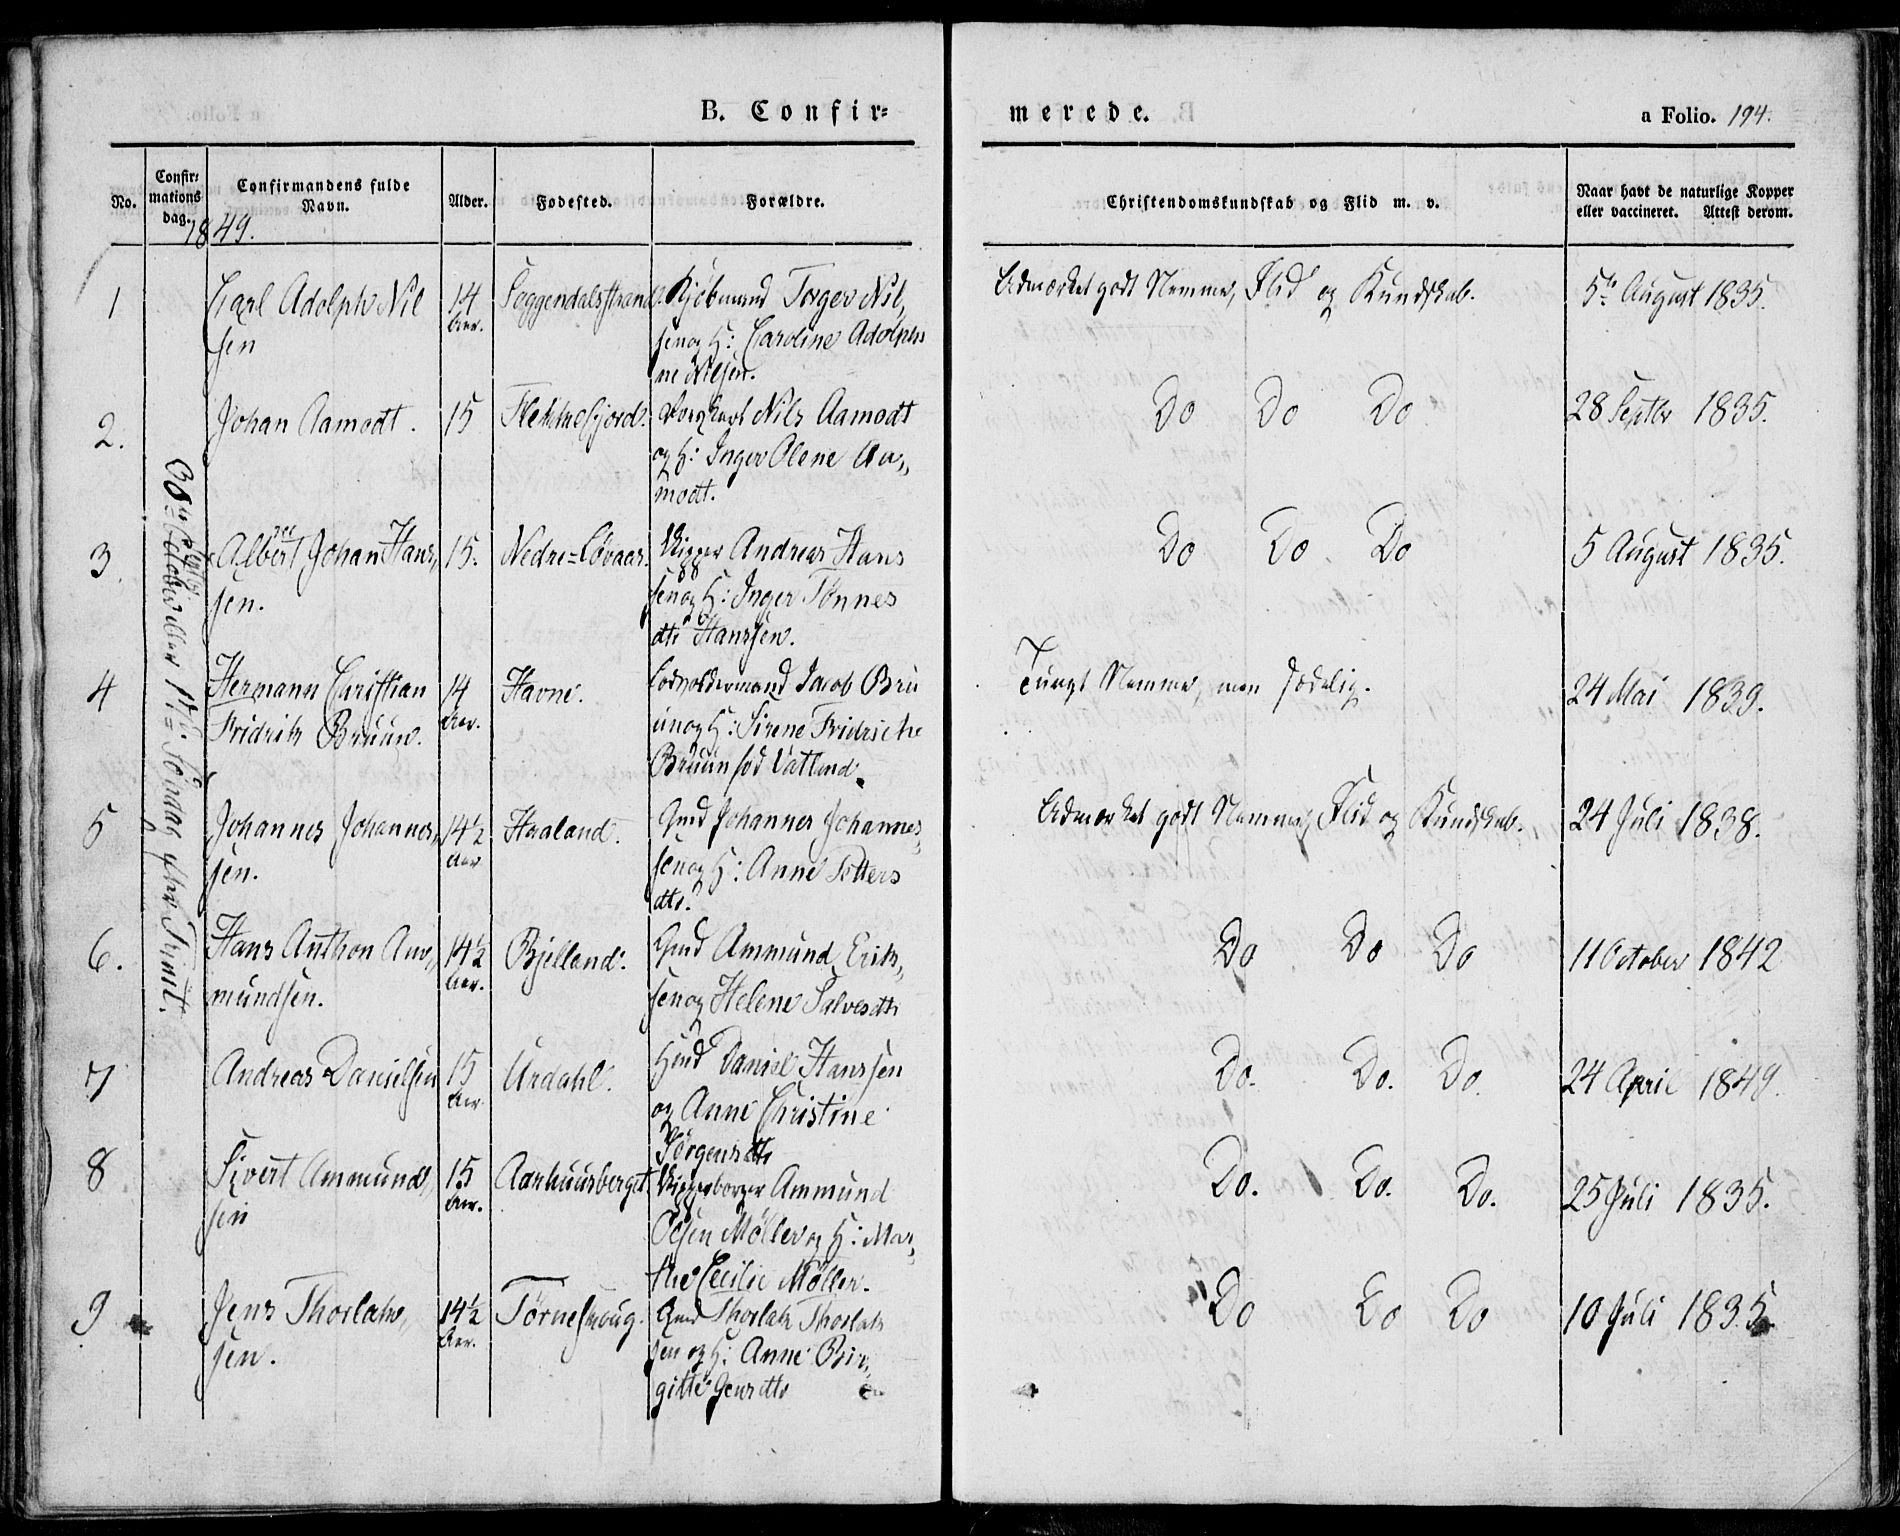 B. Confir=
merede.
a Folio. 194.
No.
Confir=
mations
dag.
Confirmandens fulde
Navn.
Alder.
Fødested.
Forældre.
Christendomskundskab og Flid m. v.
Naar havt de naturlige Kopper
eller vaccineret. Attest derom.
1849.
30te Septbr October eller 17de Søndag efter Trinit.
1
Carl Adolph Nil
sen
14
Aar.
Soggendalsstrand.
Kjøbmand Torger Nil,
sen og H: Caroline Adolphi
ne Nilsen.
Udmærket godt Nemme, Flid og Kundskab.
5te August 1835.
2.
Johan Aamodt.
15
Flekkefjord.
Nils Aamodt
og H: Inger Olene Aa,,
modt.
Do Do Do
28 Septbr 1835.
3.
Albert Johan Hans,,
sen.
15.
Nedre=Løvaas.
Skipper Andreas Hans
sen og H: Inger Tønnes
dtr Hanssen.
Do Do Do
5 August 1835.
4
Hermann Christian
Fridrik Bruun.
14
Aar.
Havne.
Lodsoldermand Jacob Bru
un og H: Sirene Fridriche
Bruun fød Vatland.
Tungt Nemme, men sædelig.
24 Mai 1839.
5
Johannes Johannes,,
sen.
14½
Aar
Haaland.
Gmd Johannes Johannes,,
sen og H: Anne Petters
dtr.
Udmærket godt Nemme, Flid og Kundskab.
24 Juli 1838.
6.
Hans Anthon Am,,
mundsen.
14½
Aar.
Bjelland.
Gmd Ammund Erik,,
sen og Helene Salvesdtr
Do Do Do
11 October 1842
7
Andreas Danielsen
15
Aar
Urdahl.
Hmd Daniel Hanssen
og Anne Christine
Jørgensdtr
Do. Do. Do.
24 April 1849.
8
Sivert Ammund,,
sen
15
Aar.
Aarhuusberget.
Skipperborger Ammund
Olsen Møller og H: Mar,,
the Cecilie Møller.
Do. Do. Do.
25 Juli 1835.
9
Jens Thorlak,,
sen.
14½
Aar.
Tørneshoug.
Gmd Thorlak Thorlak
sen og H: Anne Bir,,
gitte Jensdtr
Do Do Do
10 Juli 1835.